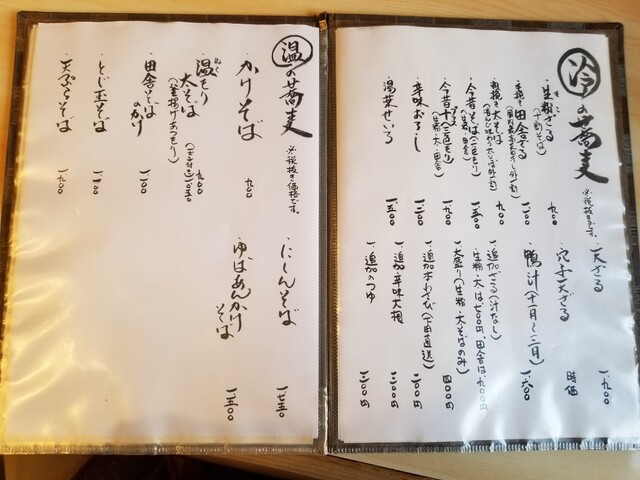 冷の蕎麦
※税抜きです。
・生粉ざる
(十割そば)
九〇〇
・粗挽き田舎ざる
一、一〇〇
・粗挽き太そば
九〇〇
・今昔そば(二色もり)
(生粉・田舎)
一、五〇〇
・今昔十(三色もり)
(生粉・太・田舎)
一、九〇〇
・辛味おろし
一、二〇〇
・湯葉せいろ
一、五〇〇
・天ざる
一、九〇〇
・穴子天ざる
時価
・鴨汁(十一月〜三月)
一、六〇〇
・追加ざる(汁なし)
生粉・太は七〇〇円 田舎は九〇〇円
・大盛り(生粉・太そばのみ)
四〇〇円
・追加本わさび(下田直送)
・追加辛味大根
二〇〇円
・追加のつゆ
二〇〇円
温の蕎麦
※税抜き価格です。
・かけそば
九〇〇
・温もり
太そば
(釜揚げあつもり)
九〇〇
(玉子付き)
・田舎そば
のかけ
一、一〇〇
・とじ玉そば
一、一〇〇
・天ぷらそば
一、九〇〇
・にしんそば
一、七五〇
・ゆばあんかけ
そば
一、五〇〇